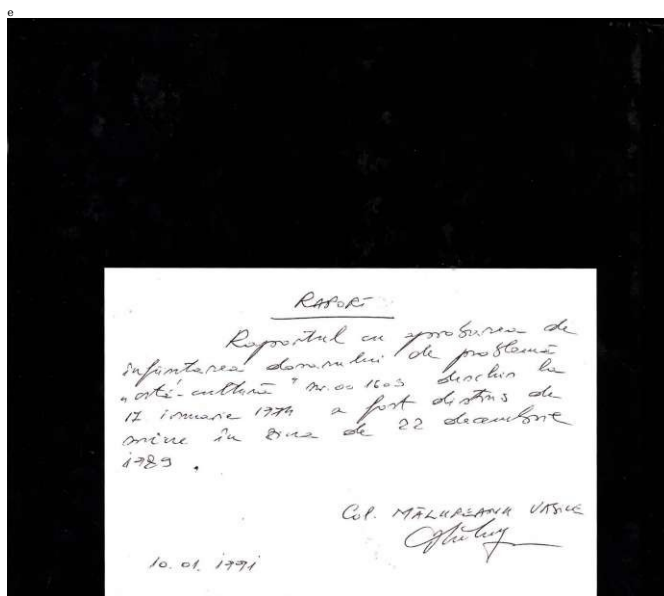 e
RAPORT
Raportul cu aprobarea de
înființarea dosarului de problemă
„artă-cultură” nr. 00 1603 deschis la
17 ianuarie 1974 a fost distrus de
mine în ziua de 22 decembrie
1989.
Col. MĂLUREANU VASILE
10.01.1991